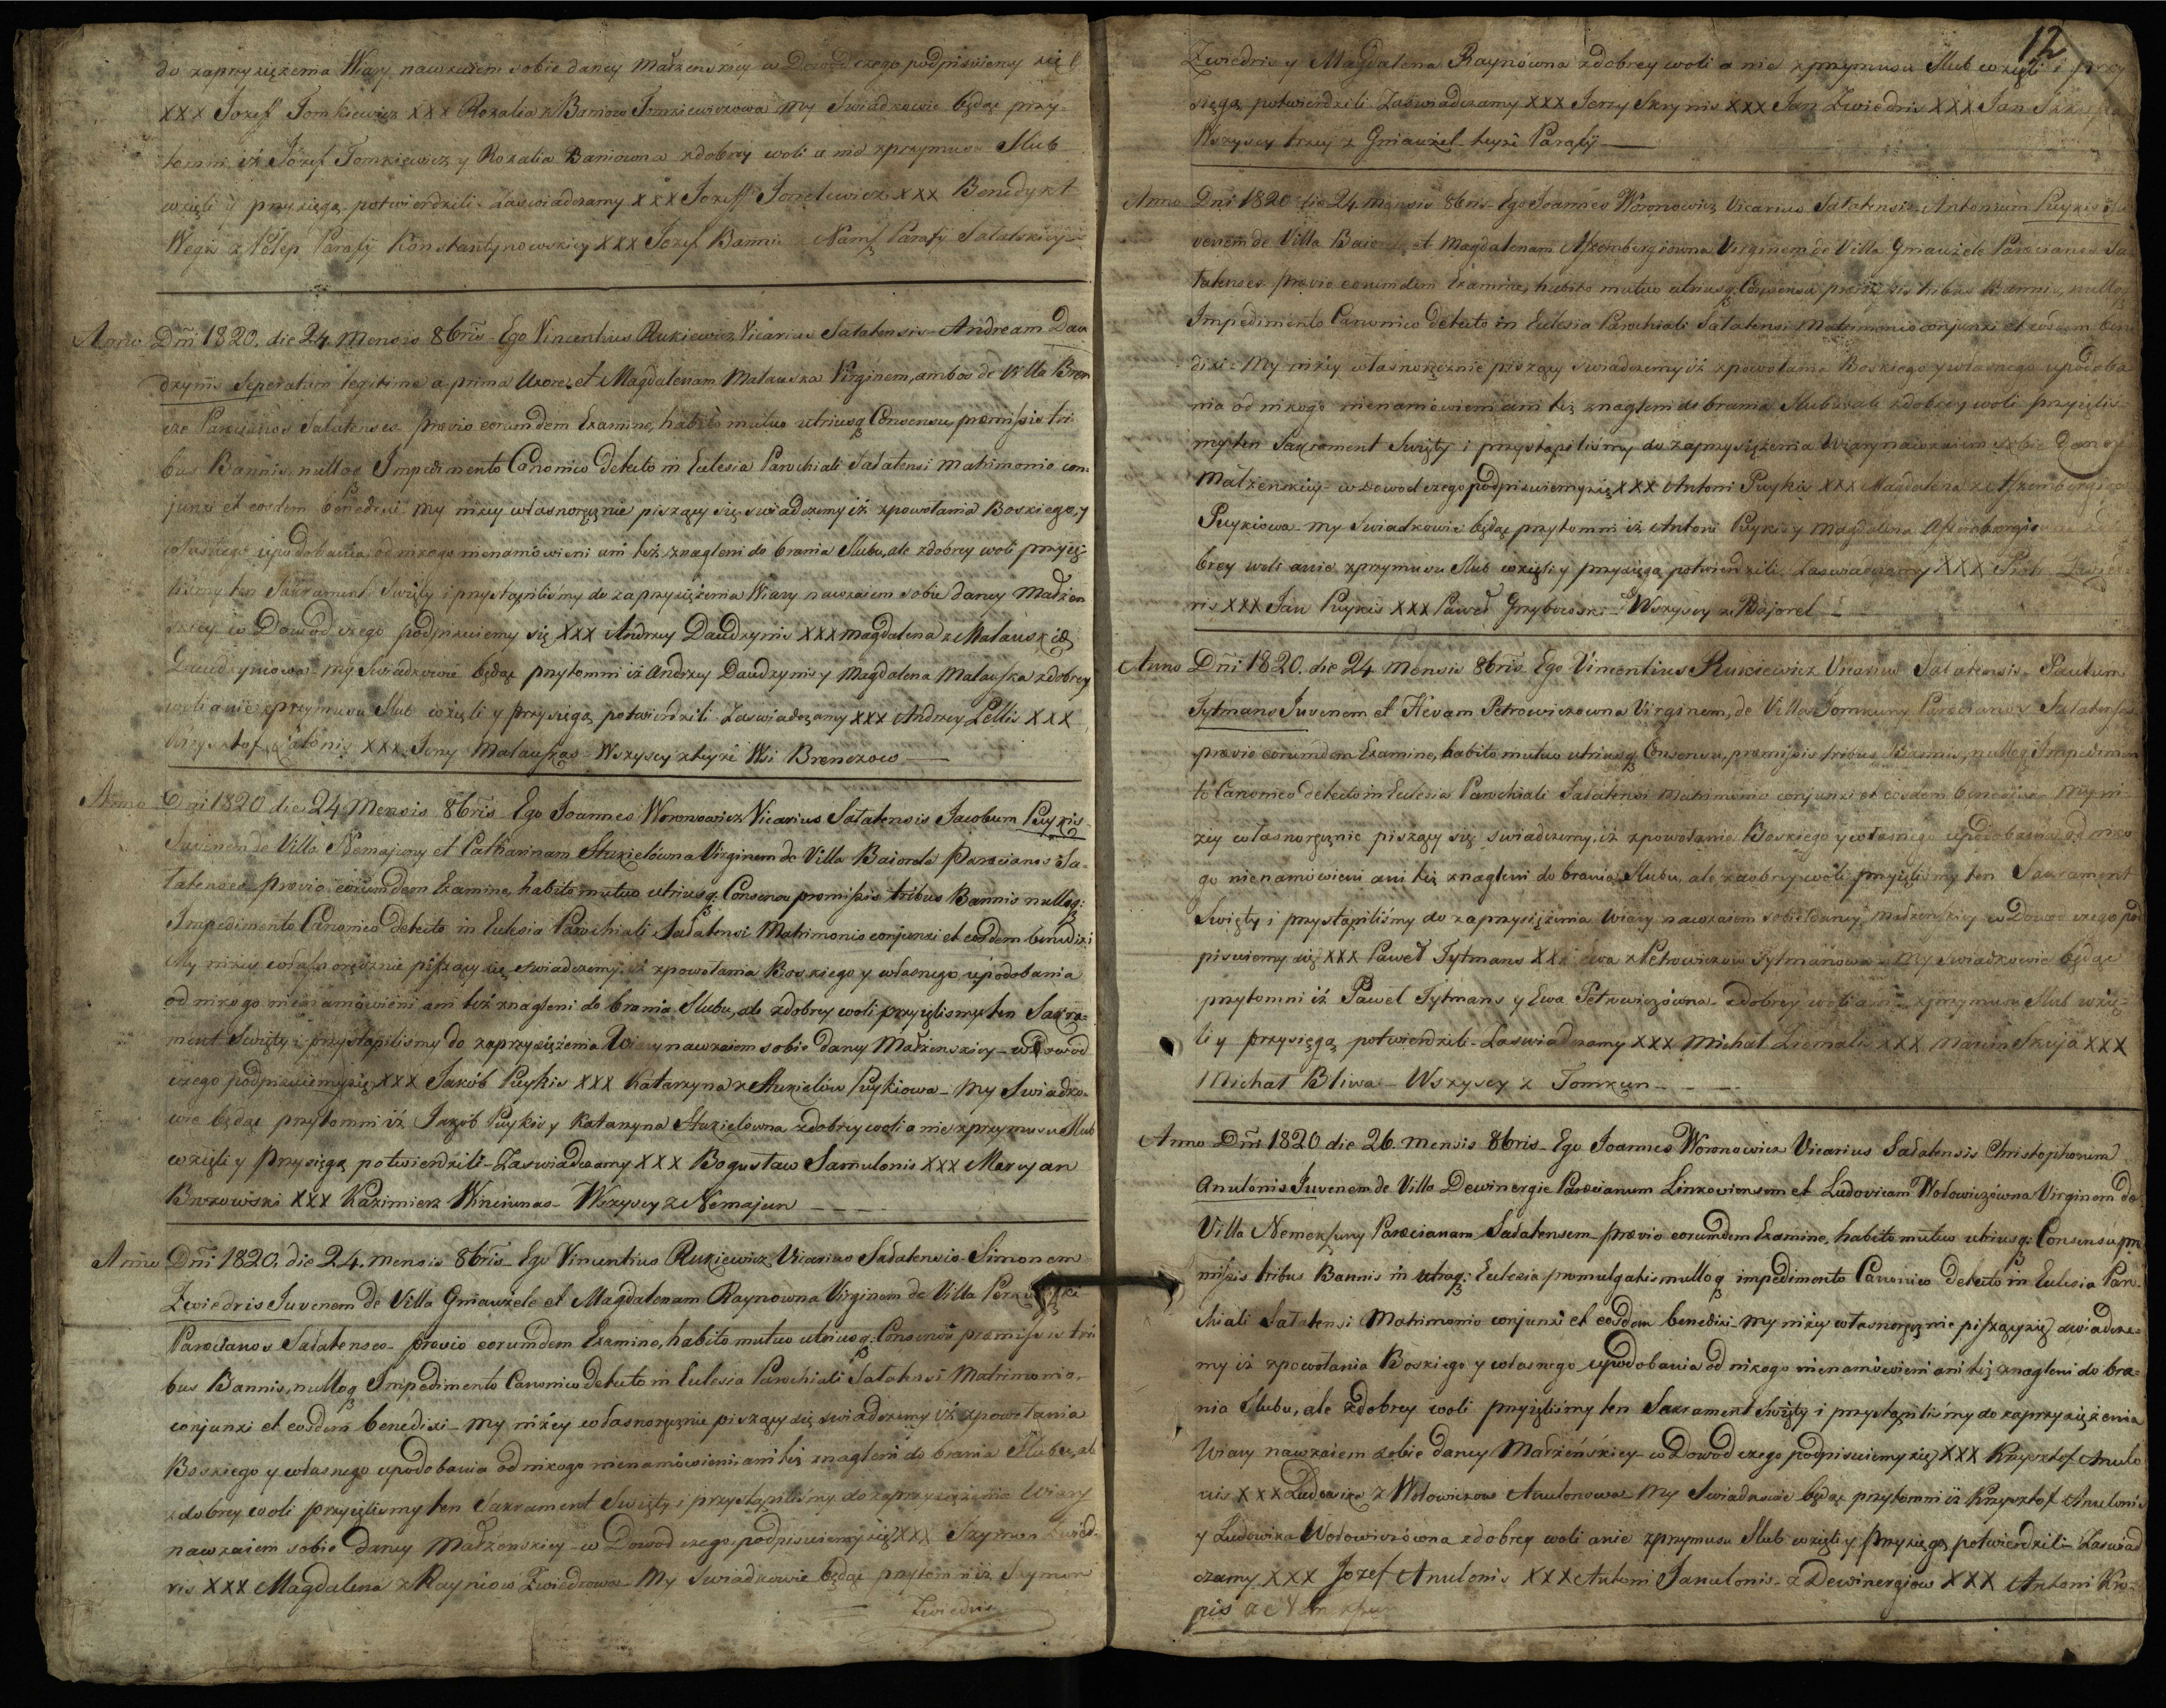 do zaprzysiężenia Wiary nawzaiem sobie daney Małżenskiey w Dowod czego podpisuiemy się
XXX Jozef Tomkiewicz XXX Rozalia z Baniow Tomkiewiczowa My Swiadkowie będąc przy-
tomni iż Józef Tomkiewicz y Rozalia Baniowna zdobrey woli a nie zprzymusu Slub
wzięli y przysięgą potwierdzili Zaswiadczamy XXX Jozeff XXX Benedykt
Parafij Konstantynowskiey XXX Jozef Bannis Parafij Sałatskiey
Anno Dni 1820. die 24 Mensis 8bris Ego Vincentius Rukiewicz Vicarius Salatensis Andream Dau
dzynis Seperatum legitime a prima Uxore, et Magdalenam Malauska Virginem, ambos de Villa Bren
cze Paræcianos Salatenses prævio eorumdem Examine, habito mutuo utriusq Consensu, præmissis tri
bus Bannis nulloq Impedimento Canonico detecto in Eclesia Parochiali Salatensi Matrimonio con-
junxi et eosdem benedixi My niżey własnoręcznie piszący się swiadczemy iż zpowołania Boskiego, y
własnego upodobania, od nikogo nienamówieni ani też znagleni do brania Slubu, ale zdobrey woli przyię-
liśmy ten Sakrament Swięty i przystąpiliśmy do zaprzysiężenia Wiary nawzaiem sobie daney Małżen
skiey w Dowod czego podpisuiemy się XXX Andrzey Daudzynis XXX Magdalena z Malauskich
Daudzynowa My Swiadkowie będąc przytomni iż Andrzey Daudzynis y Magdalena Malauska zdobrey
woli a nie zprzymusu Slub wzięli y przysięgą potwierdzili Zaswiadczamy XXX Andrzey Lellis XXX
Krzysztof XXX Jerzy Malauskas Wszyscy zteyże Wsi Brenczow
Anno Dni 1820 die 24 Mensis 8bris Ego Joannes Woronowicz Vicarius Salatensis Jacobum Puykis
Juvenem de Villa Nemajuny et Catharinam Stuzielówna Virginem de Villa Baiorele Paræcianos Sa-
latenses prævio eorumdem Examine, habito mutuo utriusq: Consensu præmissis tribus Bannis nulloq:
Impedimento Canonico detecto in Eclesia Parochiali Salatensi Matrimonio conjunxi et eosdem benedixi
My niżey własnoręcznie piszący się swiadczemy iż zpowołania Boskiego y własnego upodobania
od nikogo nienamówieni ani też znagleni do brania Slubu, ale zdobrey woli przyięlismy ten Sakra-
ment Swięty i przystąpilismy do zaprzysiężenia Wiary nawzaiem sobie daney Małżenskiey w Dowod
czego podpisuiemy się XXX Jakób Puykis XXX Katarzyna z Stuzielów Puykiowa My Swiadko-
wie będąc przytomni iż Jakób Puykis y Katarzyna Stuzielówna zdobrey woli a nie zprzymusu Slub
wzięli y przysięgą potwierdzili Zaswiadczamy XXX Bogusław Samulonis XXX Mercyan
Burkowski XXX Kazimierz Winciunas Wszyscy z Nemajun
Anno Dni 1820. die 24. Mensis 8bris Ego Vincentius Rukiewicz Vicarius Salatensis Simonem
Zwiedris Juvenem de Villa Gniauzele et Magdalenam Raynowna Virginem de Villa
Paræcianos Salatenses prævio eorumdem Examine, habito mutuo utriusq: Consensu præmissis tri
bus Bannis, nulloq Impedimento Canonico detecto in Eclesia Parochiali Salatensi Matrimonio
conjunxi et eosdem benedixi My niżey własnoręcznie piszący się swiadczemy iż zpowołania
Boskiego y własnego upodobania od nikogo nienamówieni ani też znagleni do brania Slubu, ale
zdobrey woli przyięlismy ten Sakrament Swięty i przystąpiliśmy do zaprzysiężenia Wiary
nawzaiem sobie daney Małżenskiey w Dowod czego podpisuiemy się XXX Szymon Zwied-
ris XXX Magdalena z Rayniow Zwiedrowa My Swiadkowie będąc przytomni iż Szymon
Zwiedris
12
Zwiedris y Magdalena Raynówna zdobrey woli a nie zprzymusu Slub wzięli i przy
sięgą potwierdzili Zaswiadczamy XXX Jerzy Skrynis XXX Jan Zwiedris XXX Jan
Wszyscy trzey z Gniauzel teyże Parafij
Anno Dni 1820 die 24 mensis 8bris Ego Joannes Woronowicz Vicarius Salatensis Antonium Puykis Ju
venem de Villa et Magdalenam Virginem de Villa Gniauzele Paræcianos Sa
latenses prævio eorumdem Examine, habito mutuo utriusq: Consensu, præmissis tribus Bannis, nulloq
Impedimento Canonico detecto in Eclesia Parochiali Salatensi Matrimonio conjunxi et eosdem bene
dixi My niżey własnoręcznie piszący swiadczemy iż zpowołania Boskiego y własnego upodoba
nia od nikogo nienamówieni ani też znagleni do brania Slubu ale zdobrey woli przyięlis-
my ten Sakrament Swięty i przystąpiliśmy do zaprzysiężenia Wiary nawzaiem sobie daney
Małżenskiey w Dowod czego podpisuiemy się XXX Antoni Puykis XXX Magdalena z
Puykiowa My Swiadkowie będąc przytomni iż Antoni Puykis y Magdalena
brey woli a nie zprzymusu Slub wzięli y przysięgą potwierdzili Zaswiadczamy XXX Piotr Zwied-
ris XXX Jan Puykis XXX Paweł Grzybowski Wszyscy z Bajorel
Anno Dni 1820. die 24 Mensis 8bris Ego Vincentius Rukiewicz Vicarius Salatensis Paulum
Tytmans Juvenem et Hevam Petrowiczowna Virginem, de Villa Tomkuny Paræcianos Salatenses
prævio eorumdem Examine, habito mutuo utriusq Consensu, præmissis tribus Bannis, nulloq Impedimen
to Canonico detecto in Eclesia Parochiali Salatensi Matrimonio conjunxi et eosdem benedixi My ni-
żey własnoręcznie piszący się swiadczemy iż zpowołania Boskiego y własnego upodobania od niko
go nienamówieni ani też znagleni do brania Slubu, ale zdobrey woli przyięlismy ten Sakrament
Swięty i przystąpiliśmy do zaprzysiężenia Wiary nawzaiem sobie daney Małżenskiey w Dowod czego pod
pisuiemy się XXX Paweł Tytmans XXX Ewa z Petrowiczow Tytmanowa My Swiadkowie będąc
przytomni iż Paweł Tytmans y Ewa Petrowiczówna zdobrey woli a nie zprzymusu Slub wzię-
li y przysięgą potwierdzili Zaswiadczamy XXX Michał Ziemalis XXX Marcin Skuja XXX
Michał Bliwa Wszyscy z Tomkun
Anno Dni 1820 die 26. mensis 8bris Ego Joannes Woronowicz Vicarius Salatensis Christophorum
Anulonis Juvenem de Villa Dewinergie Paræcianum Linkowiensem et Ludovicam Wołowiczówna Virginem de
Villa Paræcianam Salatensem prævio eorumdem Examine, habito mutuo utriusq: Consensu præ
missis tribus Bannis in utraq: Eclesia promulgatis nulloq impedimento Canonico detecto in Eclesia Paro-
chiali Salatensi Matrimonio conjunxi et eosdem benedixi My niżey własnoręcznie piszący się swiadcze-
my iż zpowołania Boskiego y własnego upodobania od nikogo nienamówieni ani też znagleni do bra-
nia Slubu, ale zdobrey woli przyięliśmy ten Sakrament Swięty i przystąpiliśmy do zaprzysiężenia
Wiary nawzaiem sobie daney Małżeńskiey w Dowod czego podpisuiemy się XXX Krzysztof Anulo
nis XXX Ludowika z Wołowiczow Anulonowa My Swiadkowie będąc przytomni iż Krzysztof Anulonis
y Ludowika Wołowiczówna zdobrey woli a nie zprzymusu Slub wzięli y przysięgą potwierdzili Zaswiad
czamy XXX Jozef Anulonis XXX Antoni Janulonis z Dewinergiow XXX Antoni Kro-
pis z